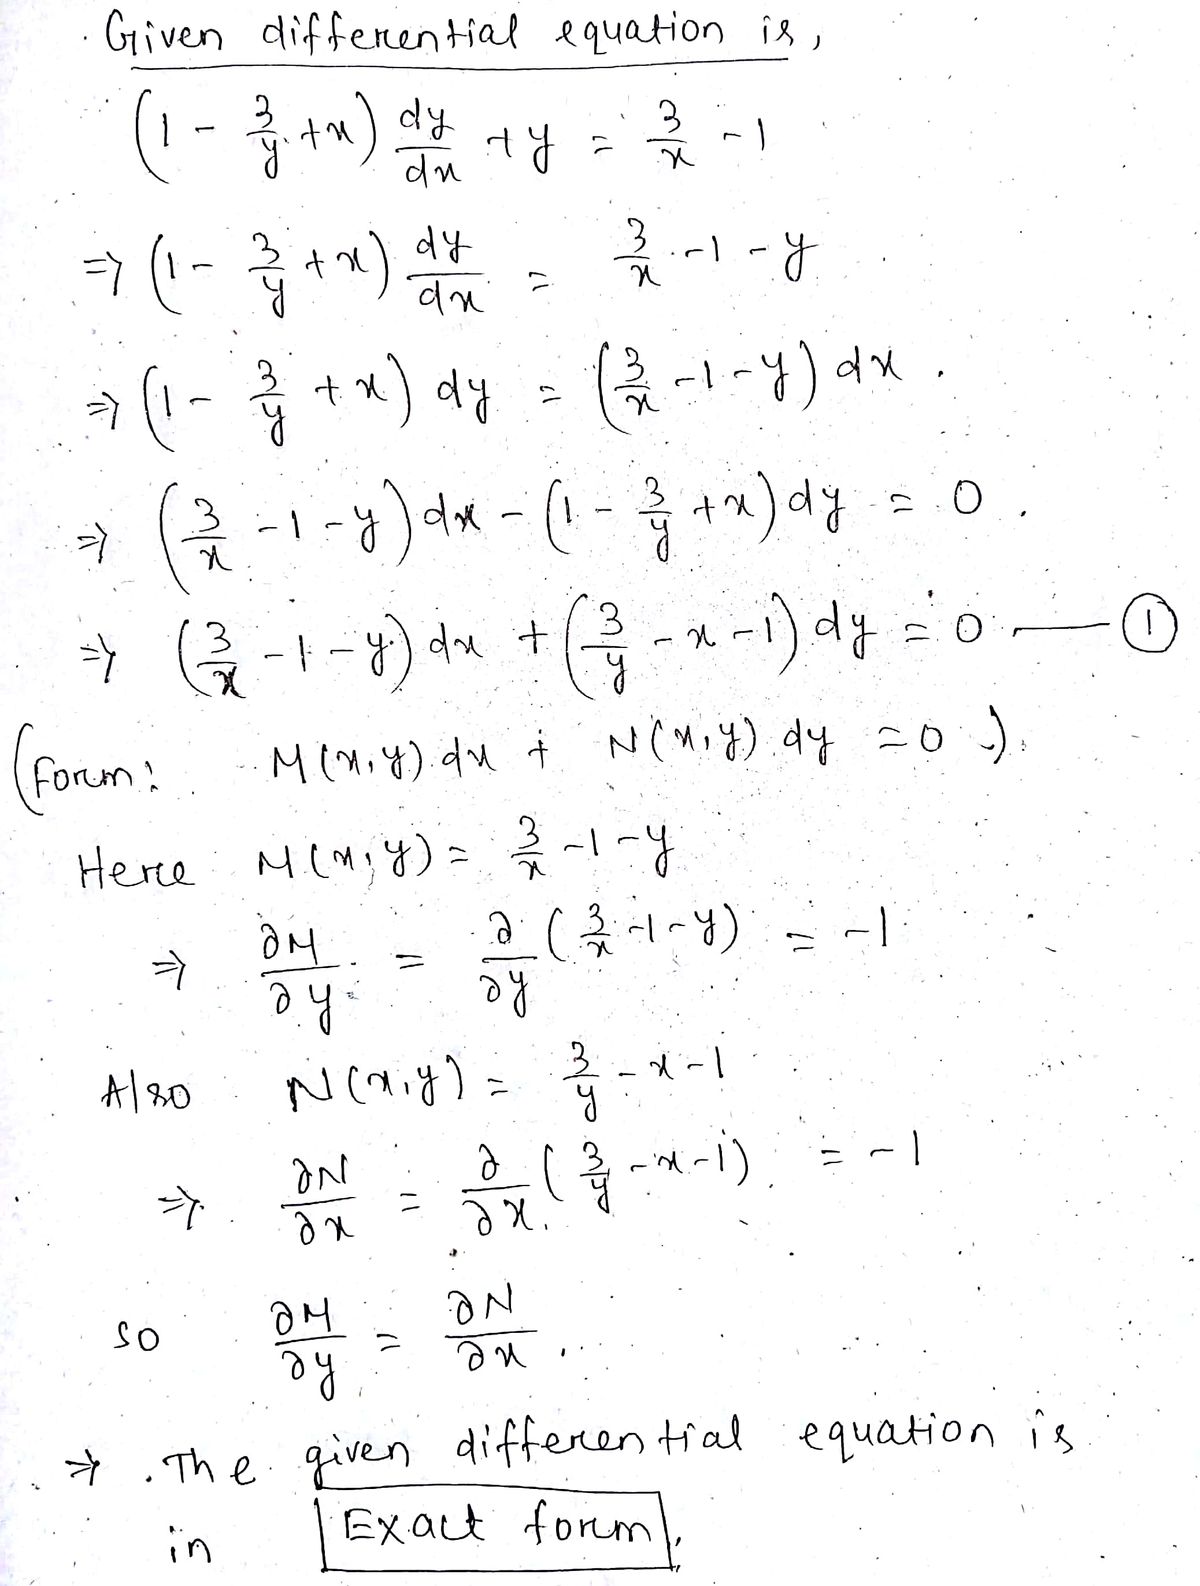 Given differential equation is,
(1 - 3/y + x) dy/dx + y = 3/x - 1
⇒ (1 - 3/y + x) dy/dx = 3/x - 1 - y
⇒ (1 - 3/y + x) dy = (3/x - 1 - y) dx.
⇒ (3/x - 1 - y) dx - (1 - 3/y + x) dy = 0.
⇒ (3/x - 1 - y) dx + (3/y - x - 1) dy = 0 — ①
(Form: M(x,y) dx + N(x,y) dy = 0.)
Here M(x,y) = 3/x - 1 - y
⇒ ∂M/∂y = ∂/∂y (3/x - 1 - y) = -1
Also N(x,y) = 3/y - x - 1
⇒ ∂N/∂x = ∂/∂x (3/y - x - 1) = -1
so ∂M/∂y = ∂N/∂x.
⇒ The given differential equation is
in Exact form.